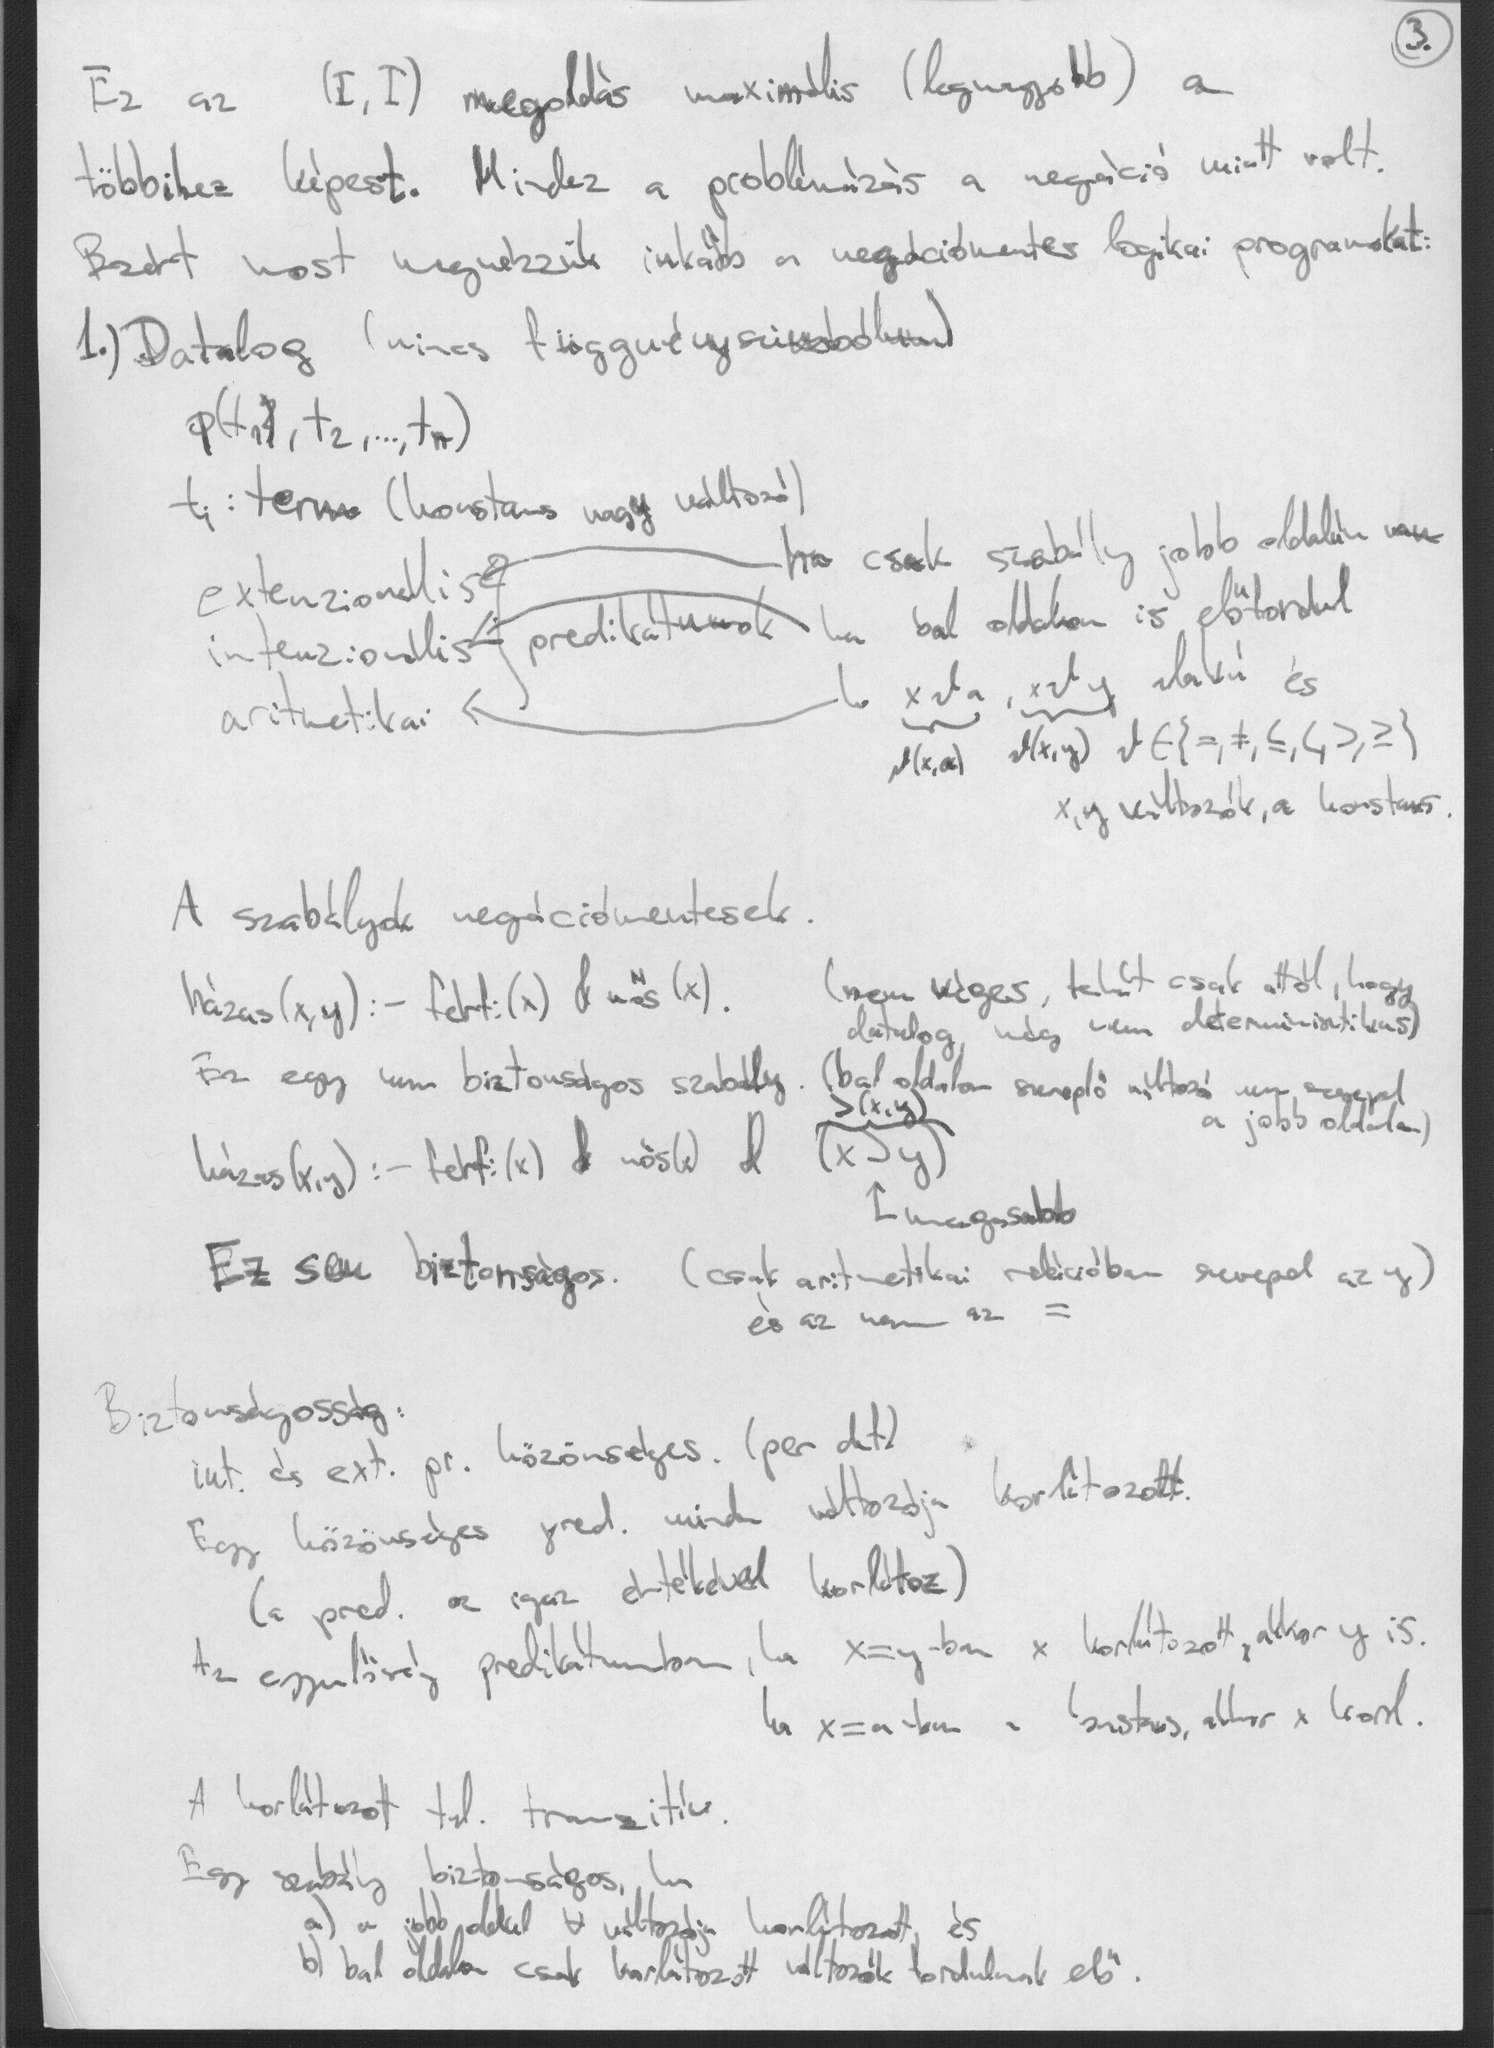 3.
Ez az (I, I) megoldás maximális (legnagyobb) a
többihez képest. Mindez a problémázás a negáció miatt volt.
Ezért most megnézzük inkább a negációmentes logikai programokat:
1.) Datalog (nincs függvényszimbólum)
p(t1, t2, ..., tn)
ti : term (konstans vagy változó)
extenzionális
ha csak szabály jobb oldalán van
intenzionális
predikátumok
ha bal oldalon is előfordul
aritmetikai
ha xϑa, xϑy alakú és
ϑ(x,a) ϑ(x,y) ϑ ∈ {=, ≠, ≤, <, >, ≥}
x, y változók, a konstans.
A szabályok negációmentesek.
házas(x,y) :- férfi(x) & nős(x). (nem véges, tehát csak attól, hogy
datalog, még nem determinisztikus)
Ez egy nem biztonságos szabály. (bal oldalon szereplő változó nem szerepel
a jobb oldalon)
>(x,y)
házas(x,y) :- férfi(x) & nős(x) & (x > y)
↑ magasabb
Ez sem biztonságos. (csak aritmetikai relációban szerepel az y)
és az nem az =
Biztonságosság:
int. és ext. pr. közönséges. (per def)
Egy közönséges pred. minden változója korlátozott.
(a pred. az igaz értékével korlátoz)
Az egyenlőség predikátumban, ha x=y-ban x korlátozott, akkor y is.
ha x=a-ban a konstans, akkor x korl.
A korlátozott tul. tranzitív.
Egy szabály biztonságos, ha
a) a jobb oldal ∀ változója korlátozott, és
b) bal oldalon csak korlátozott változók fordulnak elő.